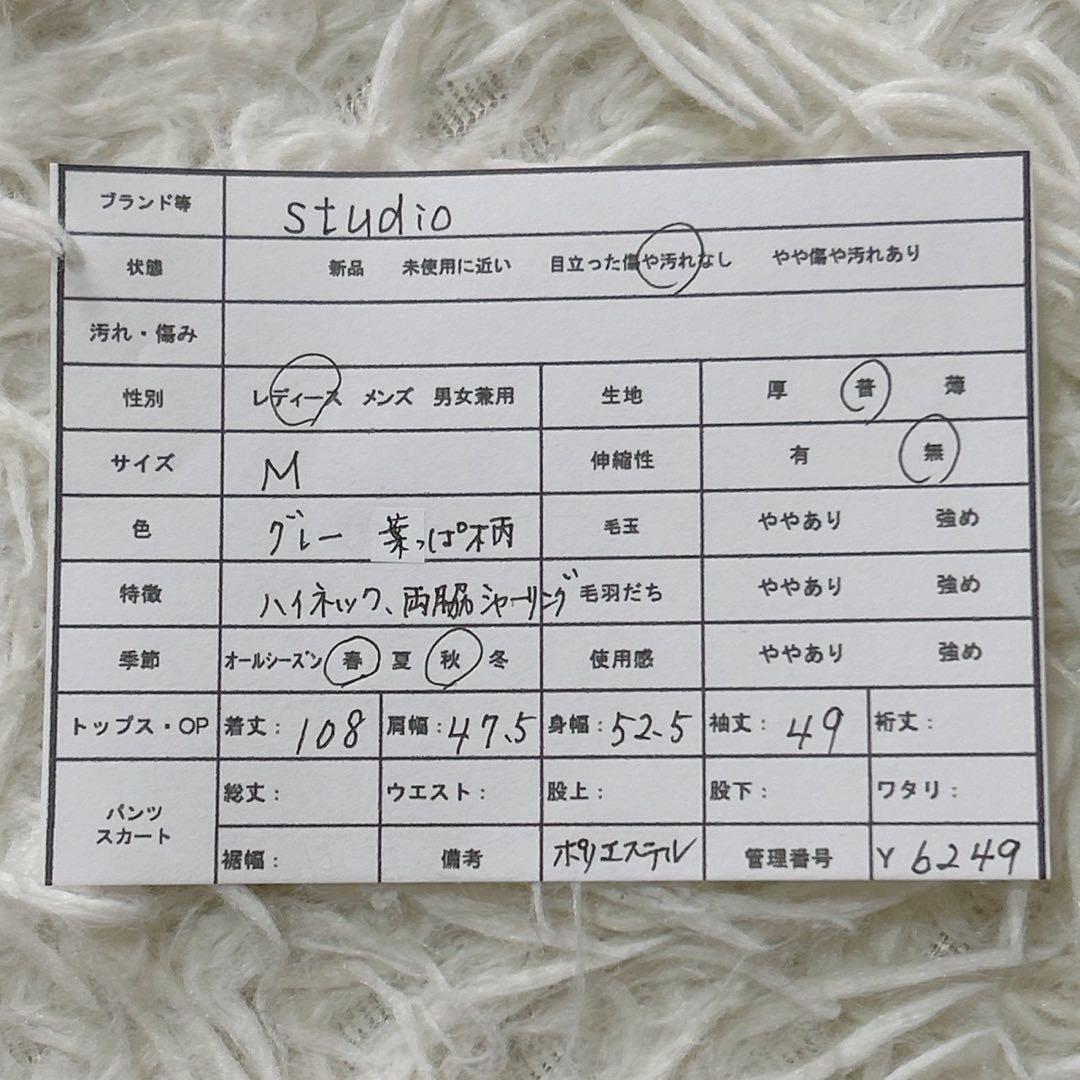 ブランド等 studio
状態 新品 未使用に近い 目立った傷や汚れなし やや傷や汚れあり
汚れ・傷み
性別 レディース メンズ 男女兼用 生地 厚 普 薄
サイズ M 伸縮性 有 無
色 グレー 葉っぱ柄 毛玉 ややあり 強め
特徴 ハイネック、両脇シャーリング 毛羽だち ややあり 強め
季節 オールシーズン 春 夏 秋 冬 使用感 ややあり 強め
トップス・OP 着丈: 108 肩幅: 47.5 身幅: 52.5 袖丈: 49 裄丈:
パンツ スカート 総丈: ウエスト: 股上: 股下: ワタリ:
裾幅: 備考 ポリエステル 管理番号 Y 6249